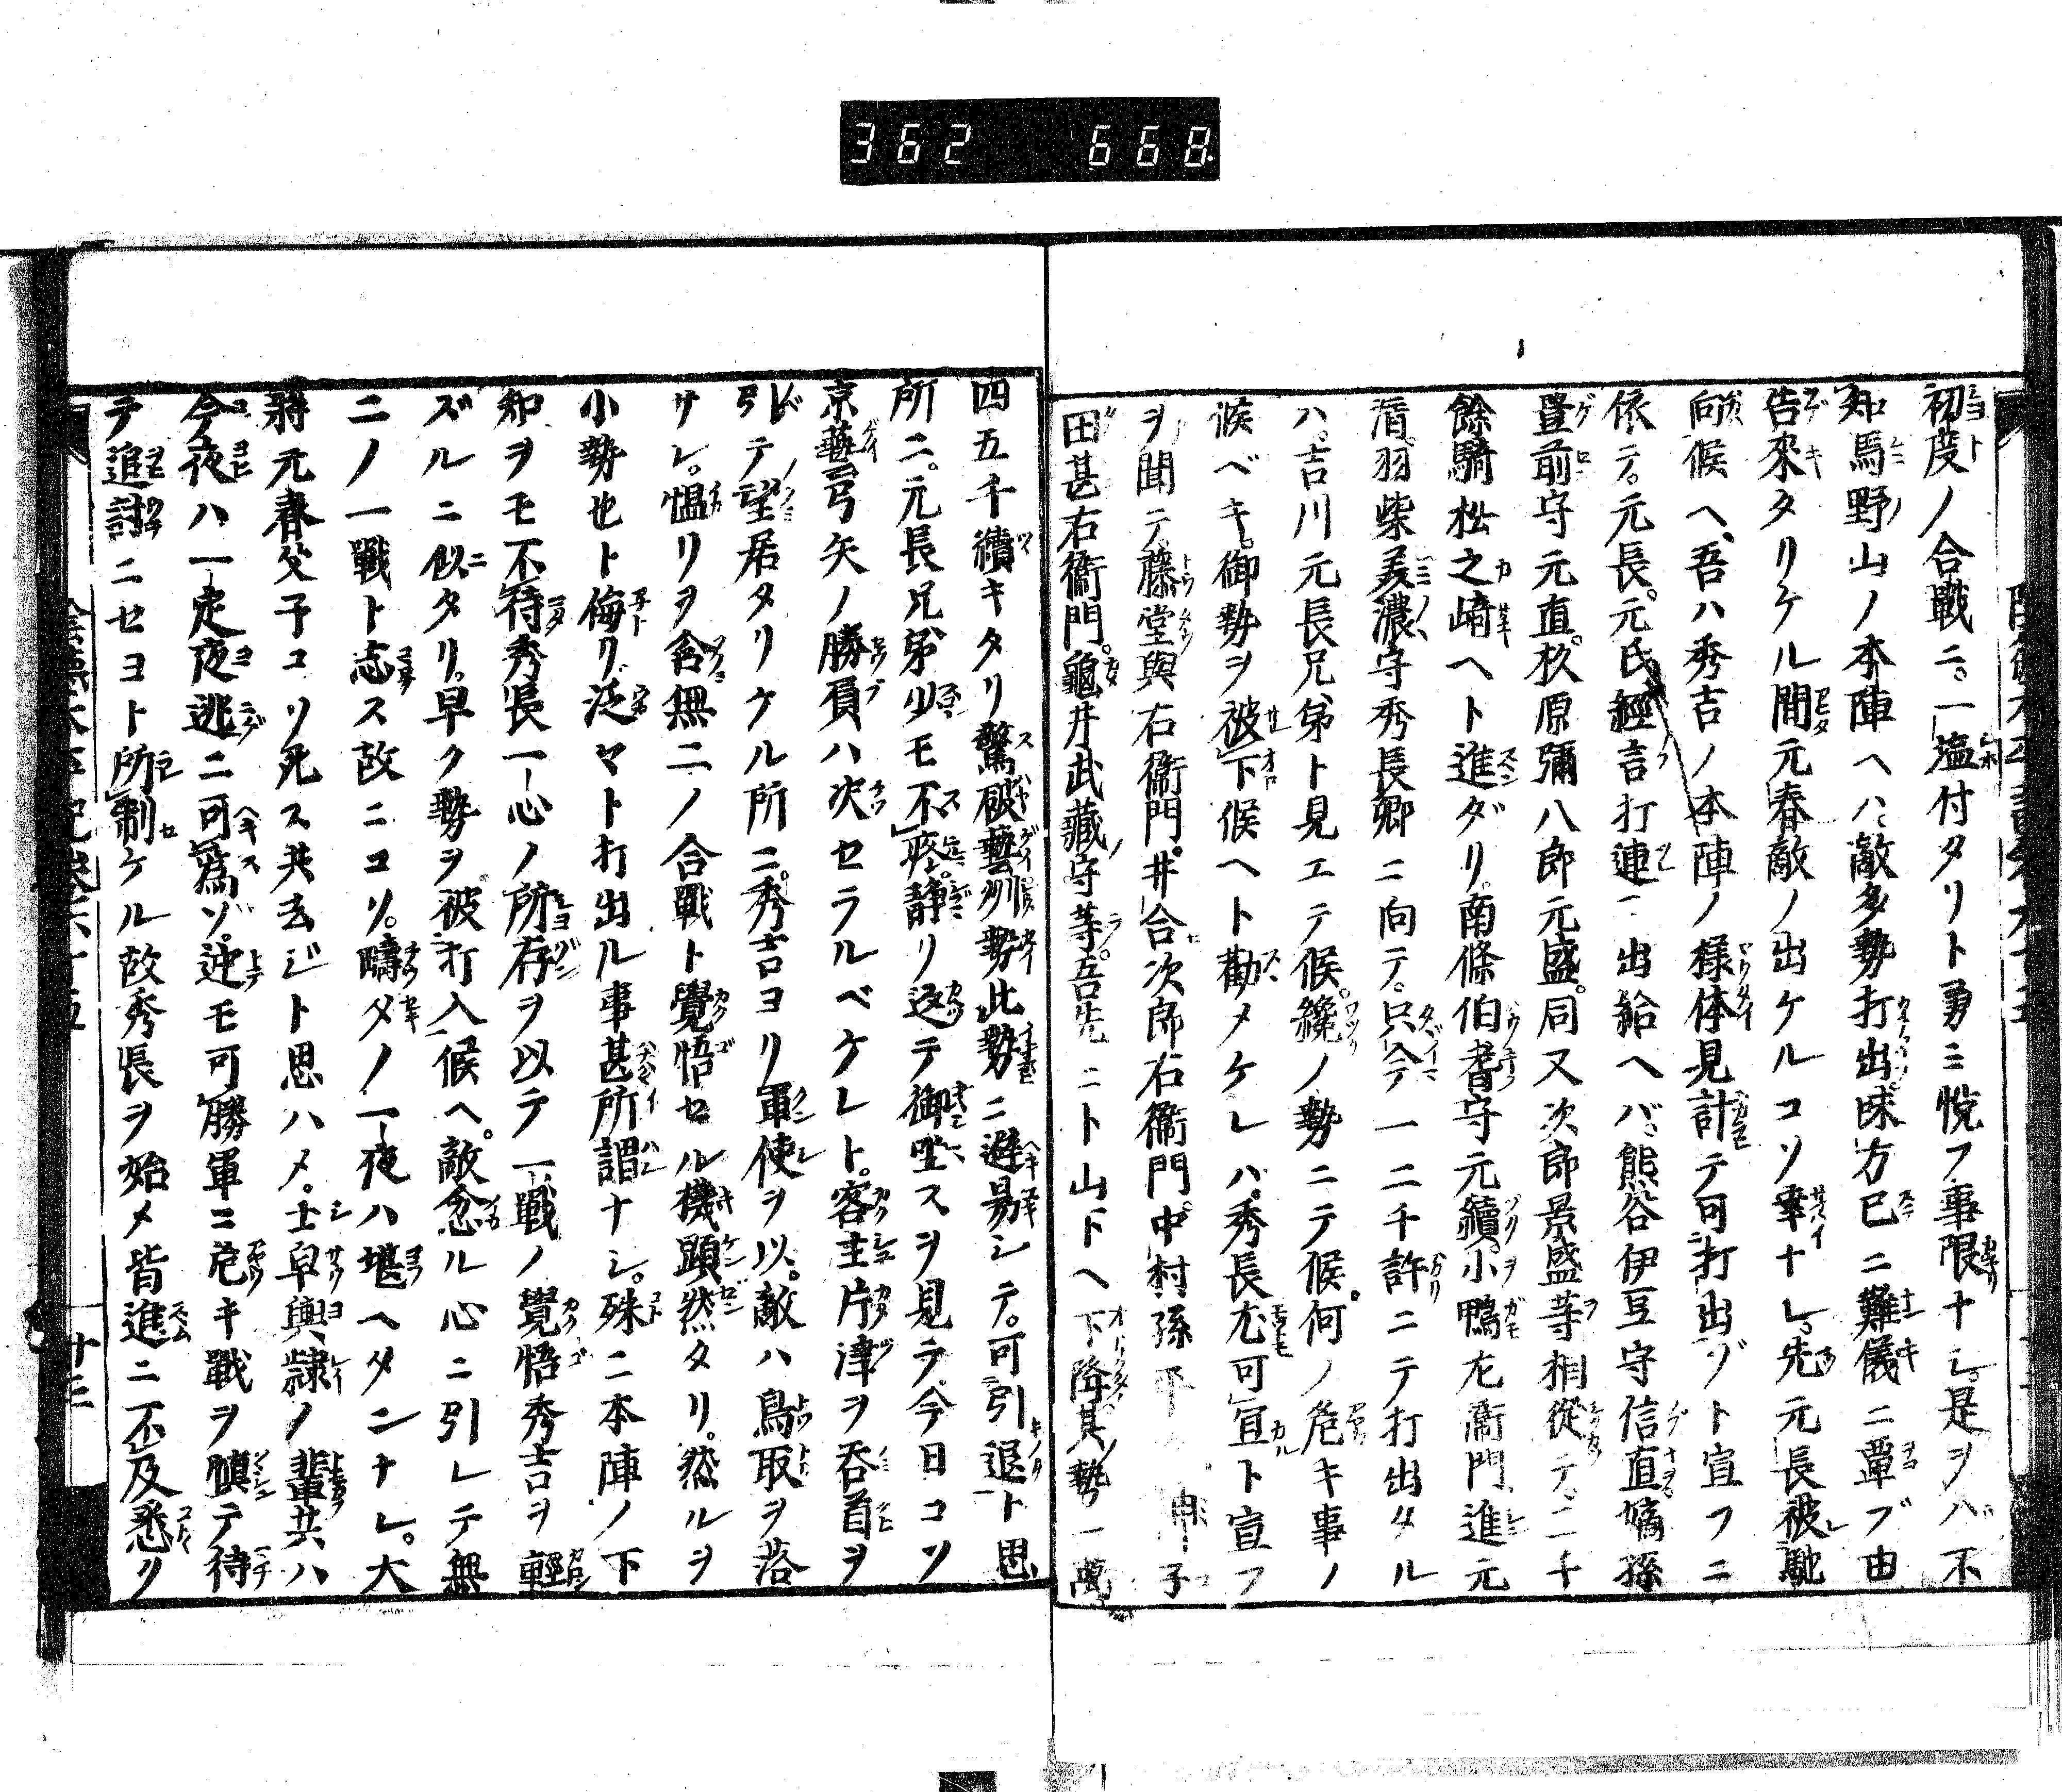 362 668.
初度ノ合戰ニ。一塩付タリト勇ミ悅フ事限ナシ。是ヲハ不
知馬野山ノ本陣ヘハ、敵多勢打出。味方已ニ難儀ニ覃ブ由
告來タリケル間元春敵ノ出ケルコソ幸ナレ。先元長被馳
向候ヘ、吾ハ秀吉ノ本陣ノ様体見計テ可打出ゾト宣フニ
依テ。元長。元氏經言打連出給ヘバ、熊谷伊豆守信直嫡孫
豊前守元直。杦原彌八郎元盛。同又次郎景盛等相從テ。二千
餘騎松之﨑ヘト進ダリ。南條伯耆守元續小鴨左衞門進元
淸。羽柴美濃守秀長卿ニ向テ。只今一二千許ニテ打出タル
ハ。吉川元長兄弟ト見エテ候。纔ノ勢ニテ候。何ノ危キ事ノ
候ベキ。御勢ヲ被下候ヘト勸メケレハ、秀長尤可宜ト宣フ
ヲ聞テ。藤堂與右衞門。井合次郎右衞門。中村孫平 子
田甚右衞門。龜井武藏守等。吾先ニト山下ヘ下降。其勢一萬
四五千續キタリ驚破藝州勢此勢ニ避易シテ。可引退ト思
所ニ。元長兄弟少モ不疼。静リ返テ御坐スヲ見テ。今日コソ
京藝弓矢ノ勝負ハ次セラルベケレト。客主片津ヲ吞首ヲ
引テ望居タリケル所ニ。秀吉ヨリ軍使ヲ以。敵ハ鳥取ヲ落
サレ。愠リヲ含無二ノ合戰ト覺悟セル機顕然タリ。然ルヲ
小勢也ト侮リ泛マト打出ル事甚所謂ナシ。殊ニ本陣ノ下
知ヲモ不待秀長一心ノ所存ヲ以テ一戰ノ覺悟秀吉ヲ輕
ズルニ似タリ。早ク勢ヲ被打入候ヘ。敵忿ル心ニ引レテ無
二ノ一戰ト志ス故ニコソ。疇タノ一夜ハ堪ヘタンナレ。大
將元春父子コソ死ス共去ジト思ハメ。士卒與隷ノ輩共ハ
今夜ハ一定夜逃ニ可爲ゾ。迚モ可勝軍ニ危キ戰ヲ愼テ待
テ追討ニセヨト所制ケル故秀長ヲ始メ皆進ニ不及悉ク
十三